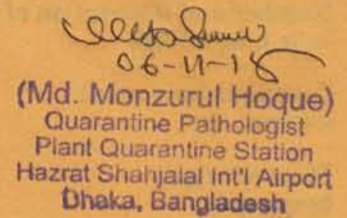 06-11-18
(Md. Monzurul Hoque)
Quarantine Pathologist
Plant Quarantine Station
Hazrat Shahjalal Int'l Airport
Dhaka, Bangladesh